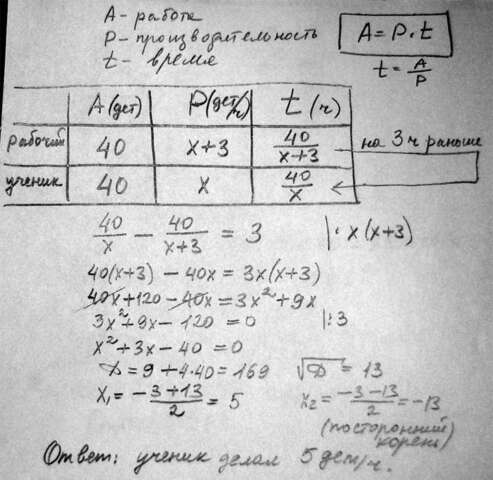 A - работа
P - производительность
t - время
A = P · t
t = A/P
A (дет) P (дет/ч) t (ч)
рабочий 40 x+3 40/(x+3) на 3 ч раньше
ученик 40 x 40/x
40/x - 40/(x+3) = 3 |: x(x+3)
40(x+3) - 40x = 3x(x+3)
40x + 120 - 40x = 3x² + 9x
3x² + 9x - 120 = 0 |:3
x² + 3x - 40 = 0
D = 9 + 4·40 = 169 √D = 13
x₁ = (-3+13)/2 = 5 x₂ = (-3-13)/2 = -13
(посторонний
корень)
Ответ: ученик делал 5 дет/ч.